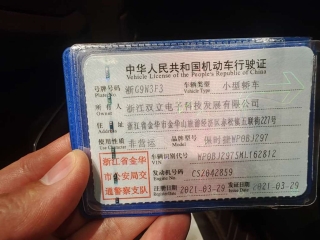 中华人民共和国机动车行驶证
Vehicle License of the People's Republic of China
号牌号码 浙G9N3F3 车辆类型 小型轿车
Plate No. Vehicle Type
所有人 浙江双立电子科技发展有限公司
Owner
住址 浙江省金华市金华山旅游经济区赤松镇五联街227号
Address
使用性质 非营运 品牌型号 保时捷WP0BJ297
Use Character Model
浙江省金华 车辆识别代号 WP0BJ2975ML162812
VIN
市公安局交 发动机号码 CS2042859
Engine No.
通警察支队 注册日期 2021-03-29 发证日期 2021-03-29
Register Date Issue Date